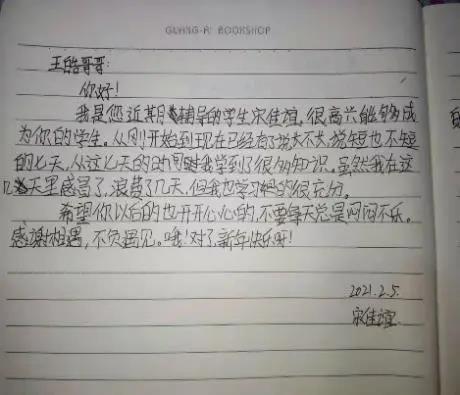 GUANG-A' BOOKSHOP
王皓哥哥:
你好!
我是您近期辅导的学生宋佳谊,很高兴能够成
为你的学生。从刚开始到现在已经有了说长不长,说短也不短
的七天,从这七天的时间我学到了很多知识。虽然我在这
几天里感冒了,浪费了几天,但我也学习的很充分。
希望你以后的也开开心心的,不要每天总是闷闷不乐。
感谢相遇,不负遇见。哦!对了,新年快乐呀!
2021.2.5.
宋佳谊